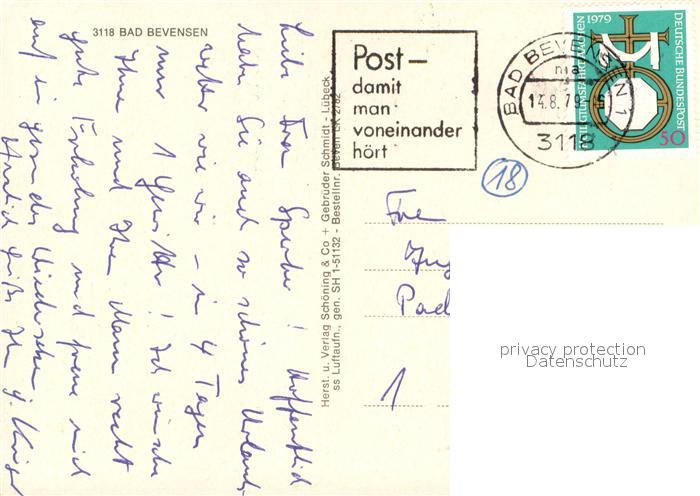 3118 BAD BEVENSEN
Liebe Frau Sprache! Hoffentlich
haben Sie auch so schönes Urlaubs-
wetter wie wir – in 4 Tagen
nur 1 Gewitter! Ich wünsche
Ihnen und Ihrem Mann recht
gute Erholung und freue mich
auf ein gesundes Wiedersehen
Herzlich grüßt Ihr
Herst. u. Verlag Schöning & Co + Gebrüder Schmidt - Lübeck
ss Luftaufn., gen. SH 1-51132 - Bestellnr. Beven LK 2782
Post –
damit
man
voneinander
hört
BAD BEVENSEN 1
14.8.79
3118
1979
DEUTSCHE BUNDESPOST
50
18
Pad
1
privacy protection
Datenschutz